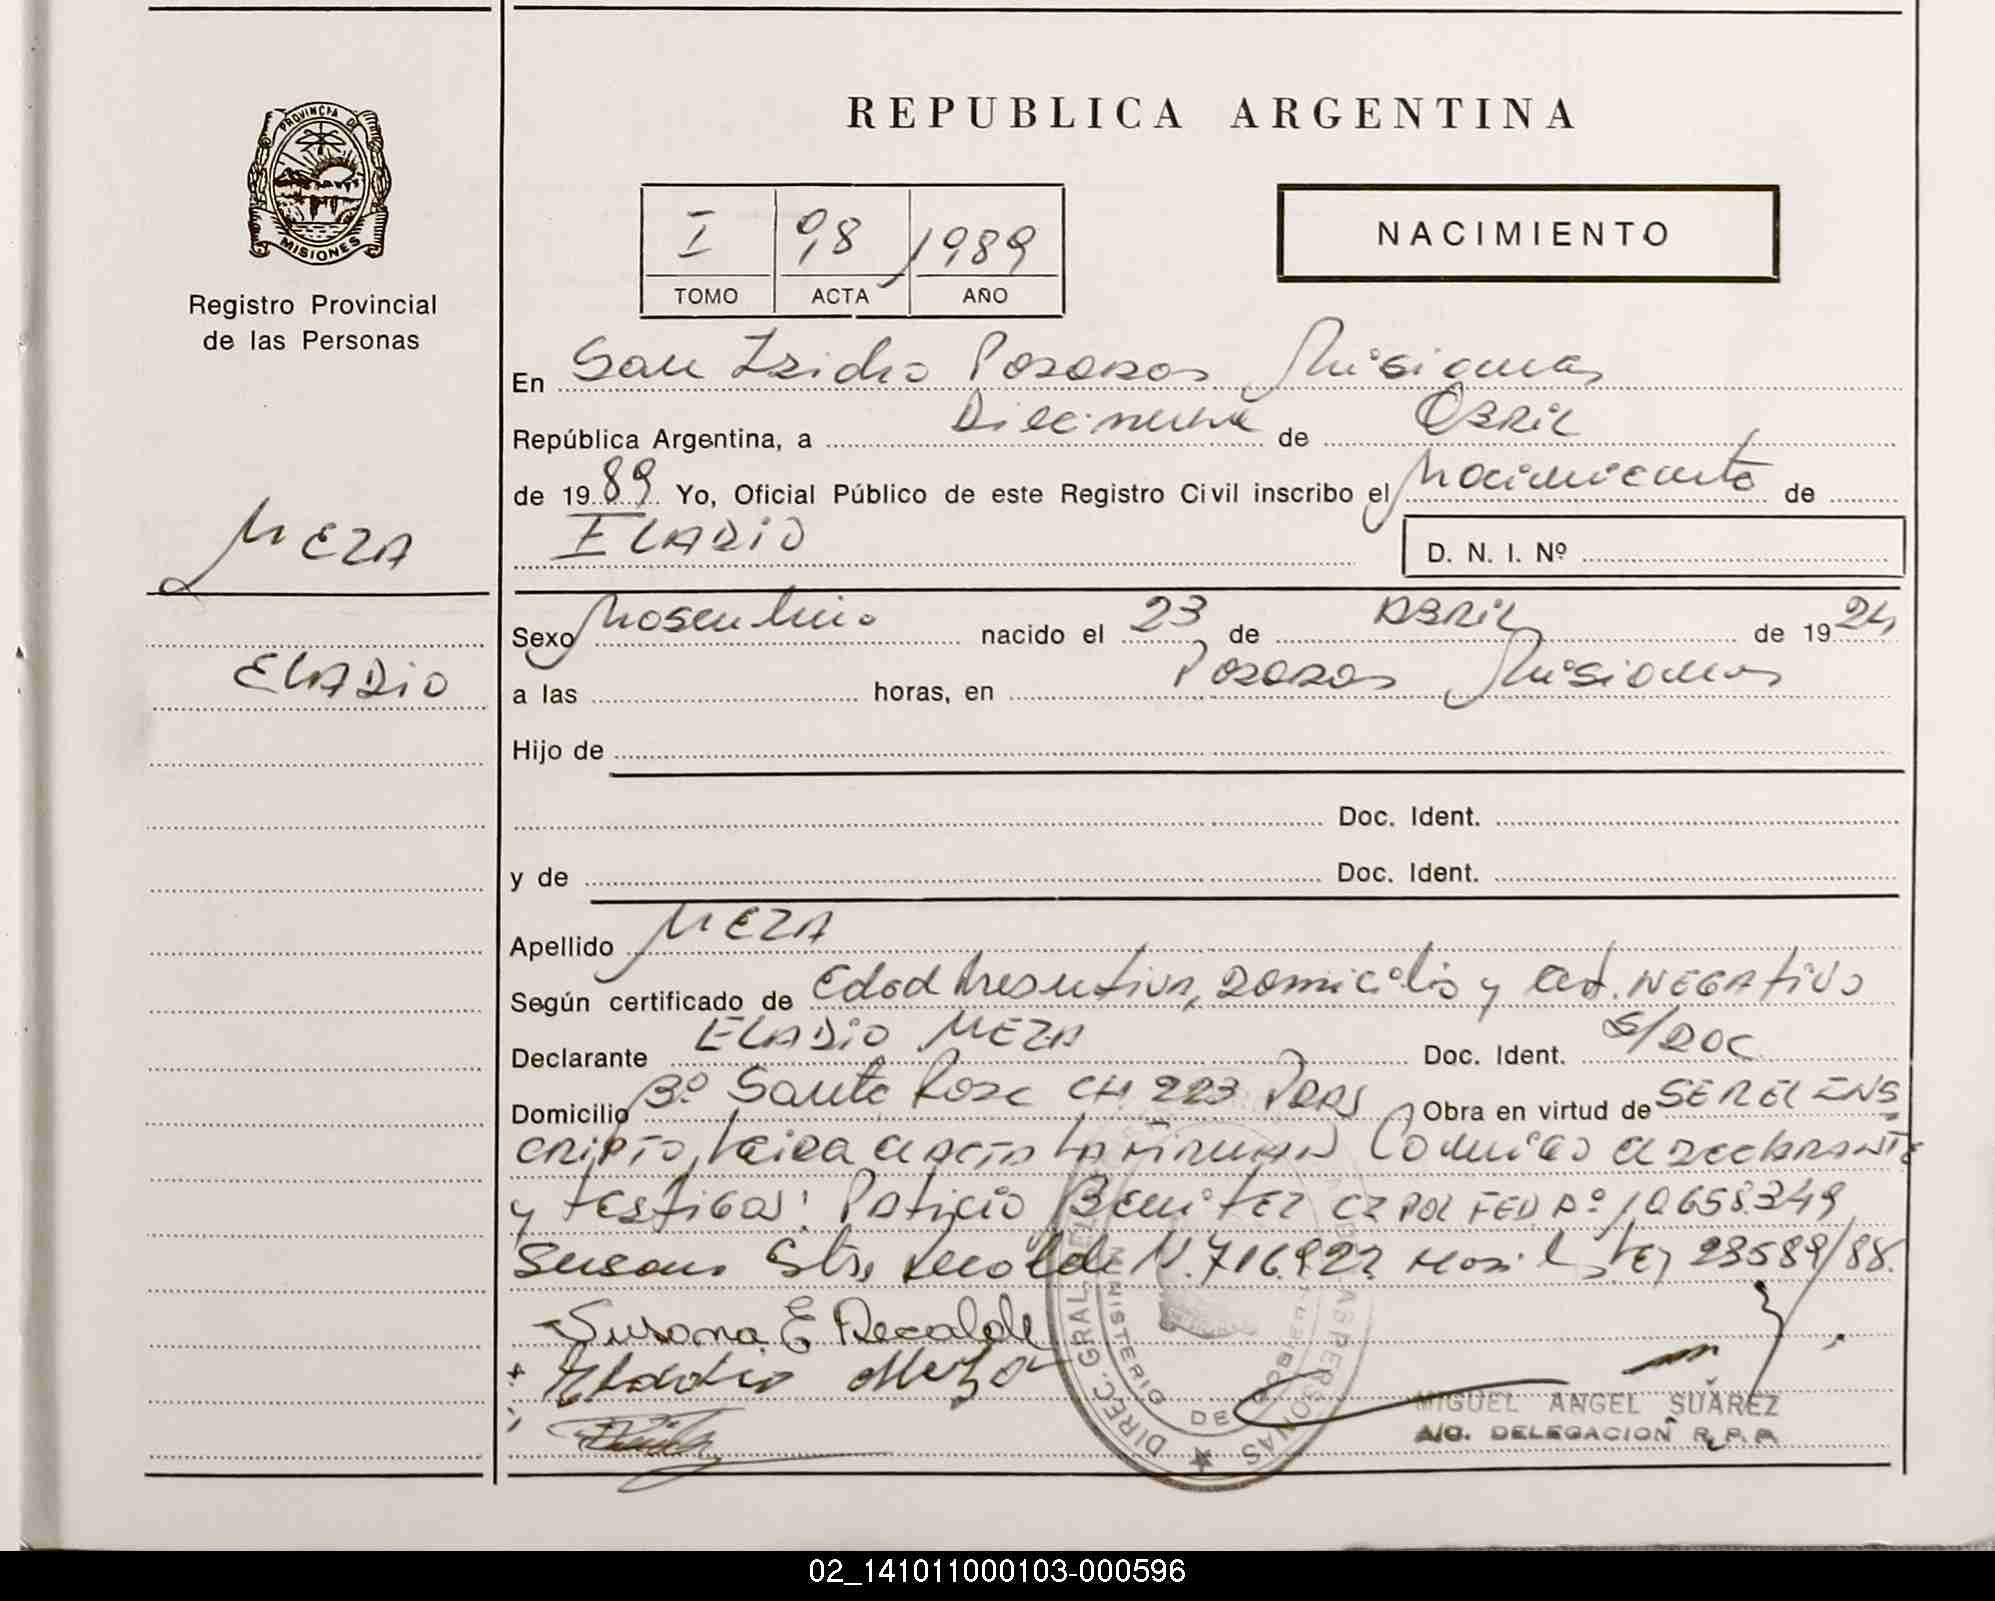 REPUBLICA ARGENTINA
PROVINCIA DE
MISIONES
Registro Provincial
de las Personas
I 98 1989
TOMO ACTA AÑO
NACIMIENTO
En San Izidro Posadas Misiones
República Argentina, a Diecinueve de Abril
de 1989 Yo, Oficial Público de este Registro Civil inscribo el Nacimiento de
ELADIO
D. N. I. Nº
MEZA
ELADIO
Sexo Masculino nacido el 23 de ABRIL de 1924
a las horas, en Posadas Misiones
Hijo de
Doc. Ident.
y de Doc. Ident.
Apellido MEZA
Según certificado de Edad Presuntiva, Domicilio y Cert. NEGATIVO
Declarante ELADIO MEZA Doc. Ident. S/DOC
Domicilio Bº Santa Rosa CH 223 PDAS Obra en virtud de SER EL INS
CRIPTO, Leida el ACTA LA FIRMAN Conmigo el Declarante
y testigos: Patricio Benitez CI POL FED Nº 10658349
Susana Recalde 11.716.922 23589/88.
Susana E Recalde
Eladio Meza
DIREC. GRAL. DE LAS PERSONAS
MINISTERIO DE GOBIERNO
MIGUEL ANGEL SUÁREZ
A/C. DELEGACION R. P. P.
02_141011000103-000596